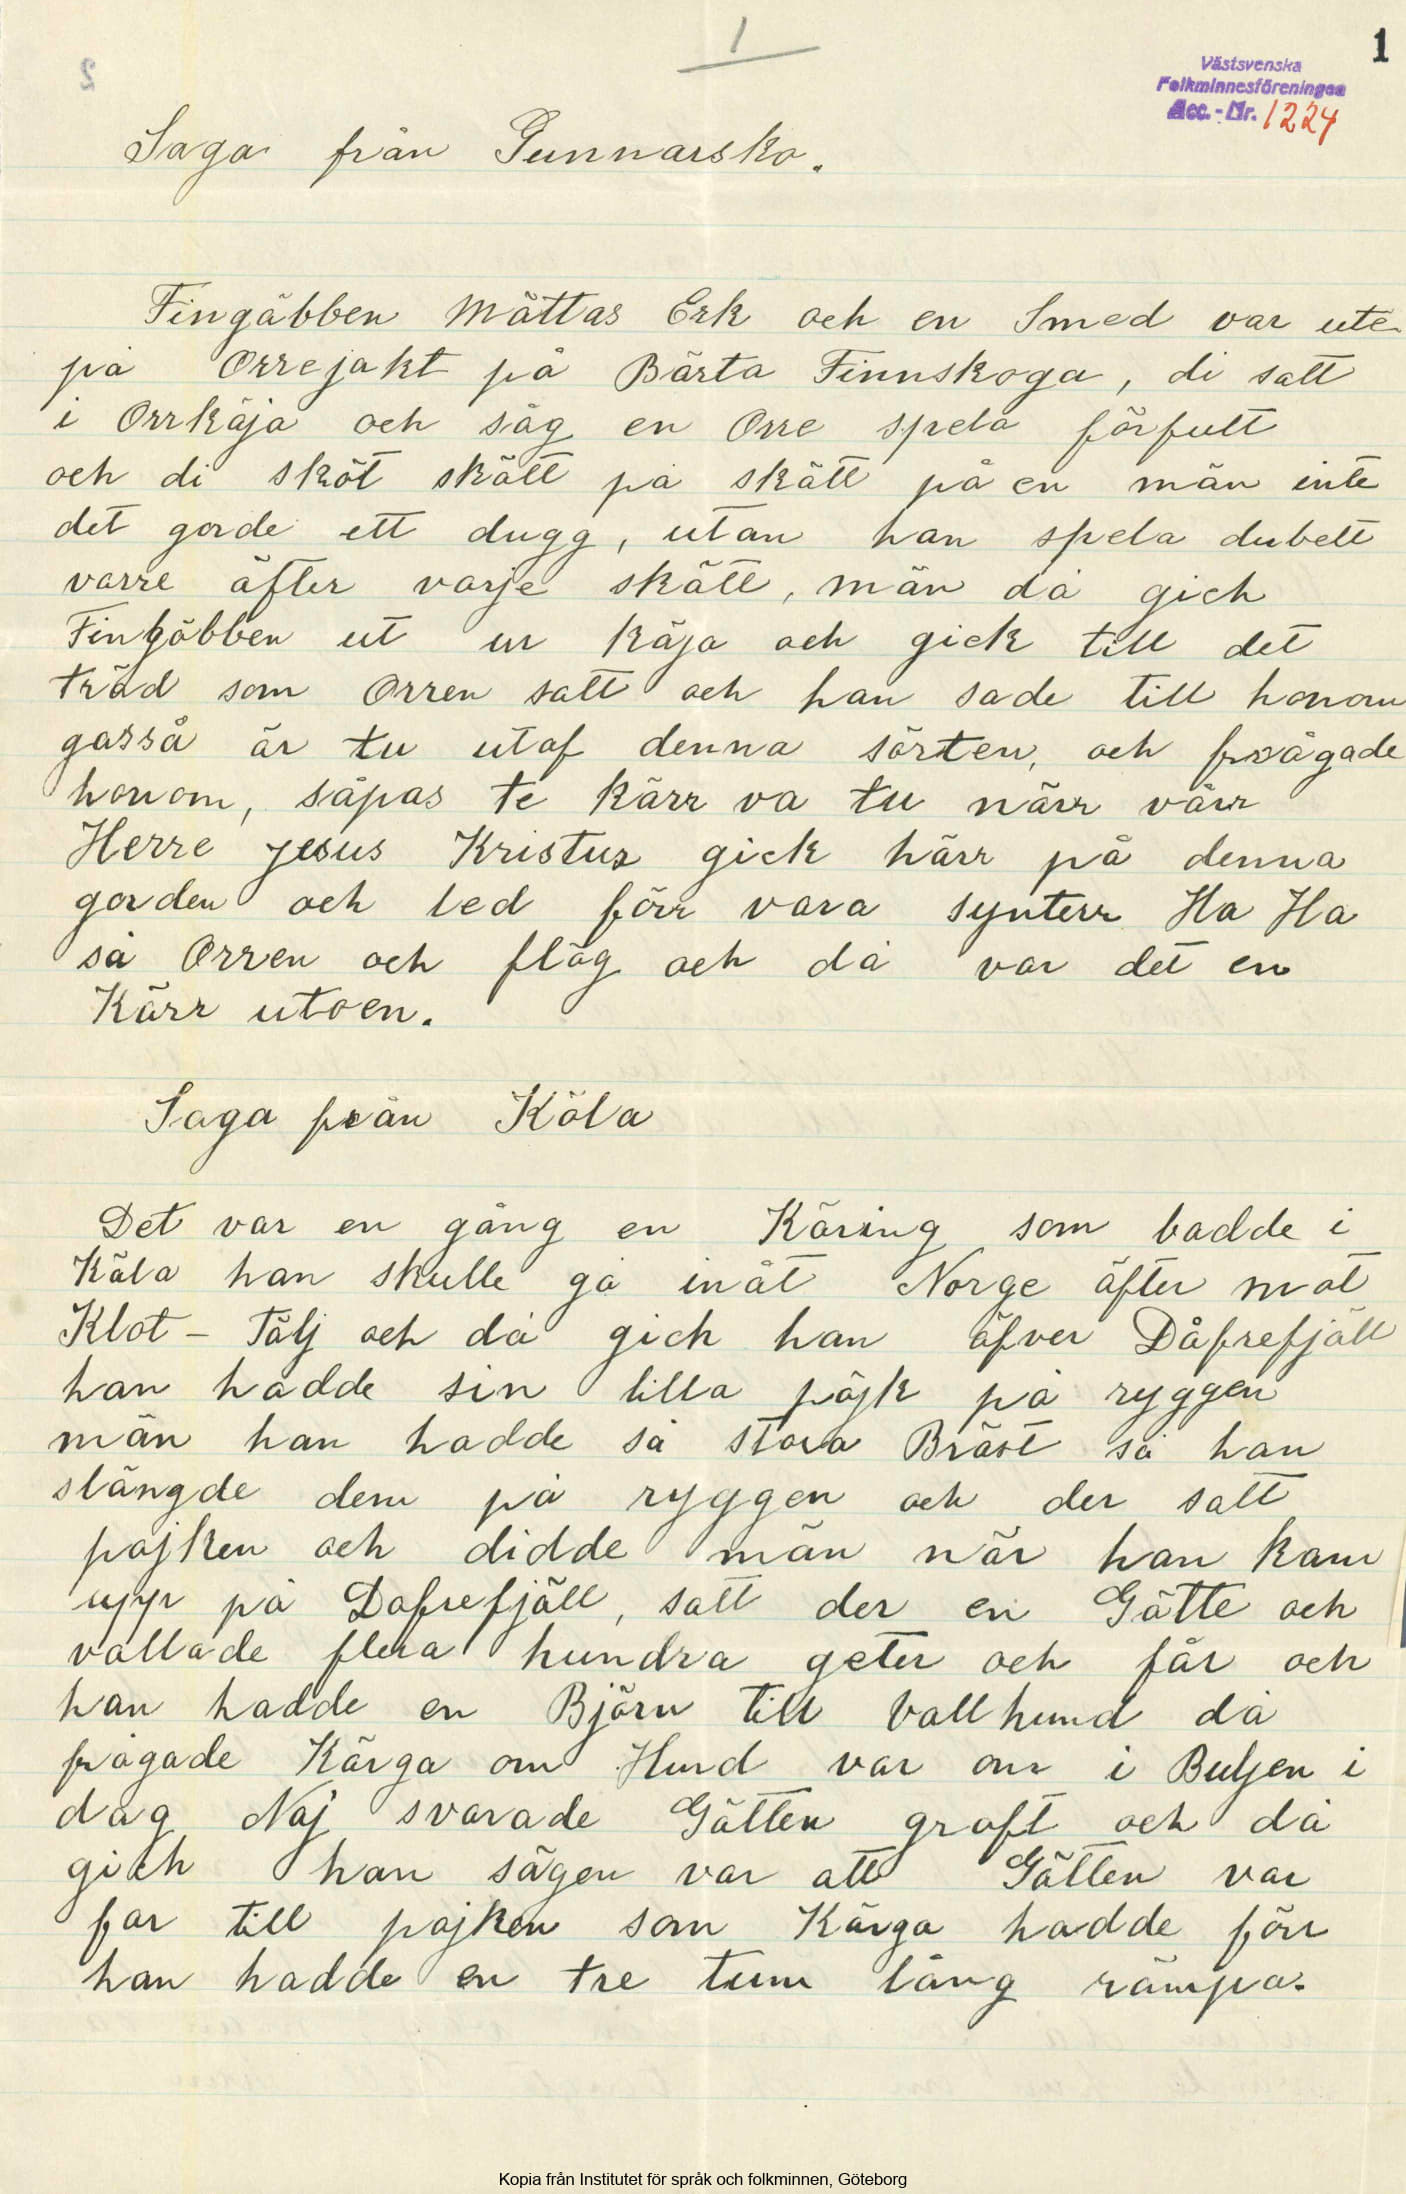 1
1
Västsvenska
Folkminnesföreningen
Acc.-Nr. 1224
Saga från Gunnarsko.
Fingåbben Mättas Erk och en Smed var ute
på Orrejakt på Bärta Finnskoga, di satt
i Orrkåja och såg en Orre spela förfult
och di sköt skått på skått på en män inte
det gorde ett dugg, utan han spela dubelt
varre äfter varje skått, män då gich
Fingåbben ut ur kåja och gick till det
träd som Orren satt och han sade till honom
gasså är tu utaf denna sörten, och frågade
honom, såpas te kärr va tu närr vårr
Herre Jesus Kristus gick härr på denna
gorden och led förr vara synterr Ha Ha
sa Orren och flög och då var det en
Kärr utoen.
Saga från Köla
Det var en gång en Käring som badde i
Kåla han skulle gå inåt Norge äfter mat
Klot - Tålj och då gich han åfver Dåfrefjäll
han hadde sin lilla påjk på ryggen
män han hadde så stora Bräst så han
slängde dem på ryggen och der satt
pojken och didde män när han kam
upp på Dofrefjäll, satt der en Gåtte och
vallade flera hundra geter och får och
han hadde en Björn till Vallhund då
frågade Kärga om Hund var om i Buljen i
dag Naj svarade Gåtten graft och då
gich han sägen var att Gåtten var
far till pojken som Kärga hadde förr
han hadde en tre tum lång rämpa.
Kopia från Institutet för språk och folkminnen, Göteborg